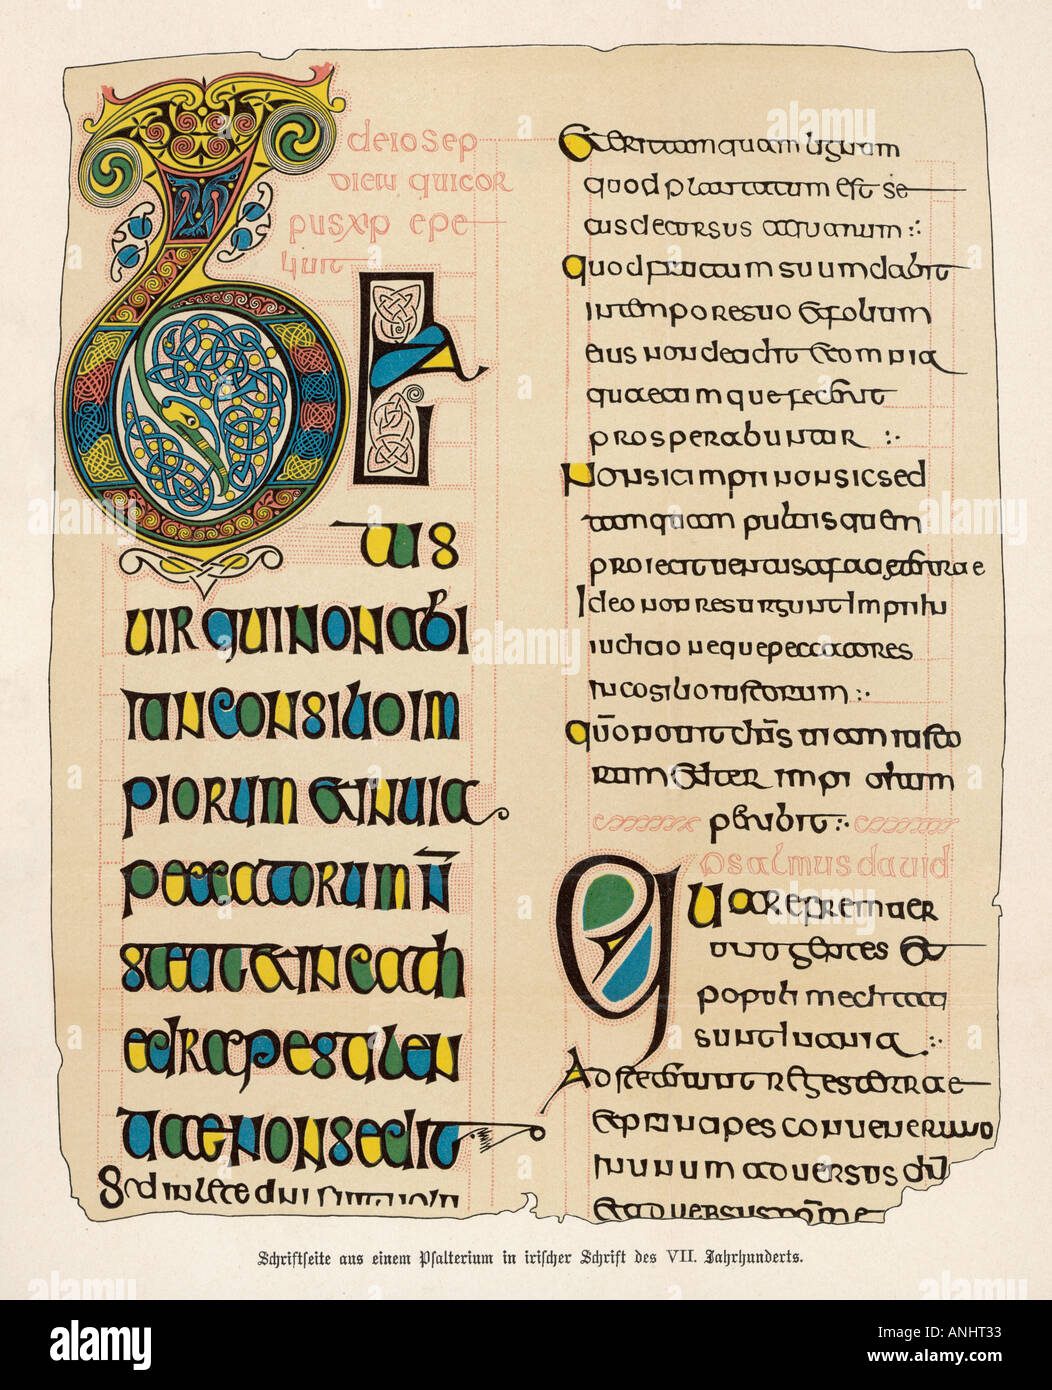 deiosep
dicit quicor
pusxp epe
liuit
BE
atus
uir qui non abi
it in consilio im
piorum et in uia
peccatorum n̄
stetit et in cath
edra pestilen
tiae non sedit
Sed in lege dni
Et erit tamquam lignum
quod plantatum est se
cus decursus aquarum
Quod fructum suum dabit
in tempore suo et folium
eius non decidet et omnia
quaecumque fecerit
prosperabuntur
Non sic impii non sic sed
tamquam puluis quem
proiecit uentus a facie terrae
Ideo non resurgunt impii in
iudicio neque peccatores
in cosilio iustorum
Qūo nouit dn̄s uiam iusto
rum et iter impiorum
peribit
psalmus dauid
Quare fremuer
unt gentes et
populi meditati
sunt inania
Adsteterunt reges terrae
et principes conuenerunt
in unum aduersus dn̄
et aduersus
Schriftseite aus einem Psalterium in irischer Schrift des VII. Jahrhunderts.
alamy
Image ID: ANHT33
www.alamy.com